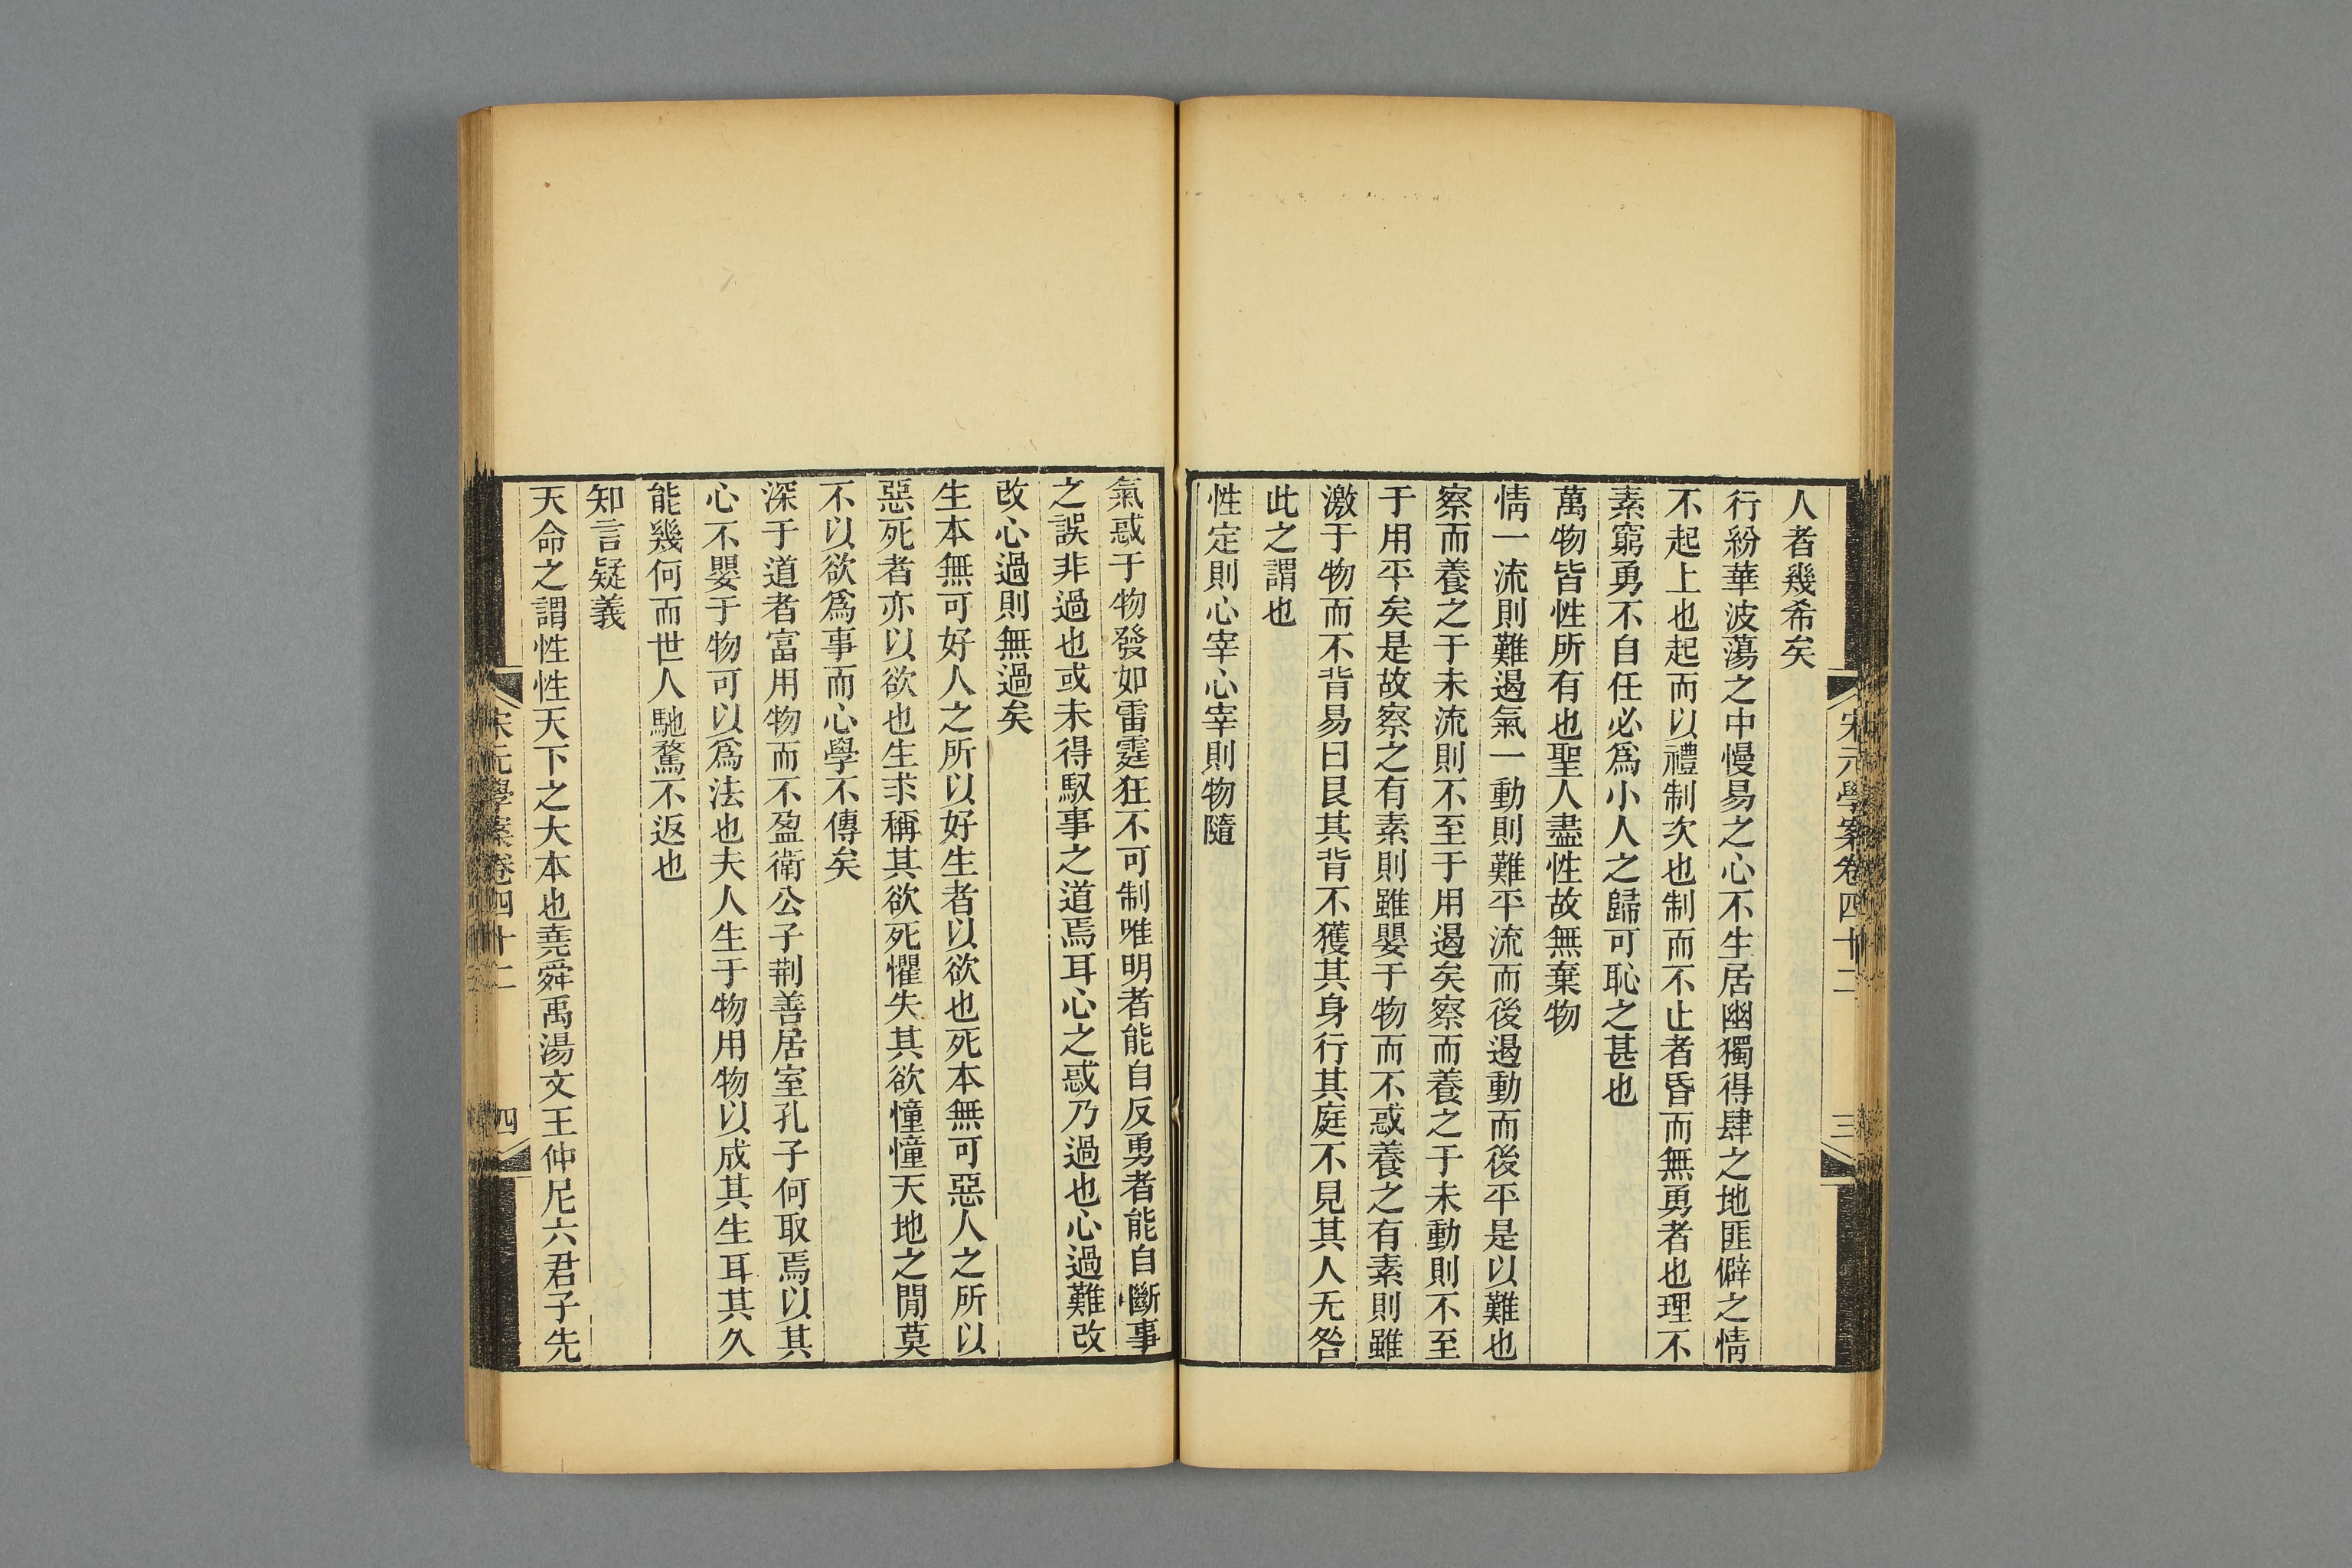 宋元學案卷四十二
三
人者幾希矣
行紛華波蕩之中慢易之心不生居幽獨得肆之地匪僻之情
不起上也起而以禮制次也制而不止者昏而無勇者也理不
素窮勇不自任必爲小人之歸可恥之甚也
萬物皆性所有也聖人盡性故無棄物
情一流則難遏氣一動則難平流而後遏動而後平是以難也
察而養之于未流則不至于用遏矣察而養之于未動則不至
于用平矣是故察之有素則雖嬰于物而不惑養之有素則雖
激于物而不背易曰艮其背不獲其身行其庭不見其人无咎
此之謂也
性定則心宰心宰則物隨
氣惑于物發如雷霆狂不可制唯明者能自反勇者能自斷事
之誤非過也或未得馭事之道焉耳心之惑乃過也心過難改
改心過則無過矣
生本無可好人之所以好生者以欲也死本無可惡人之所以
惡死者亦以欲也生求稱其欲死懼失其欲憧憧天地之閒莫
不以欲爲事而心學不傳矣
深于道者富用物而不盈衛公子荆善居室孔子何取焉以其
心不嬰于物可以爲法也夫人生于物用物以成其生耳其久
能幾何而世人馳騖不返也
知言疑義
天命之謂性性天下之大本也堯舜禹湯文王仲尼六君子先
宋元學案卷四十二
四